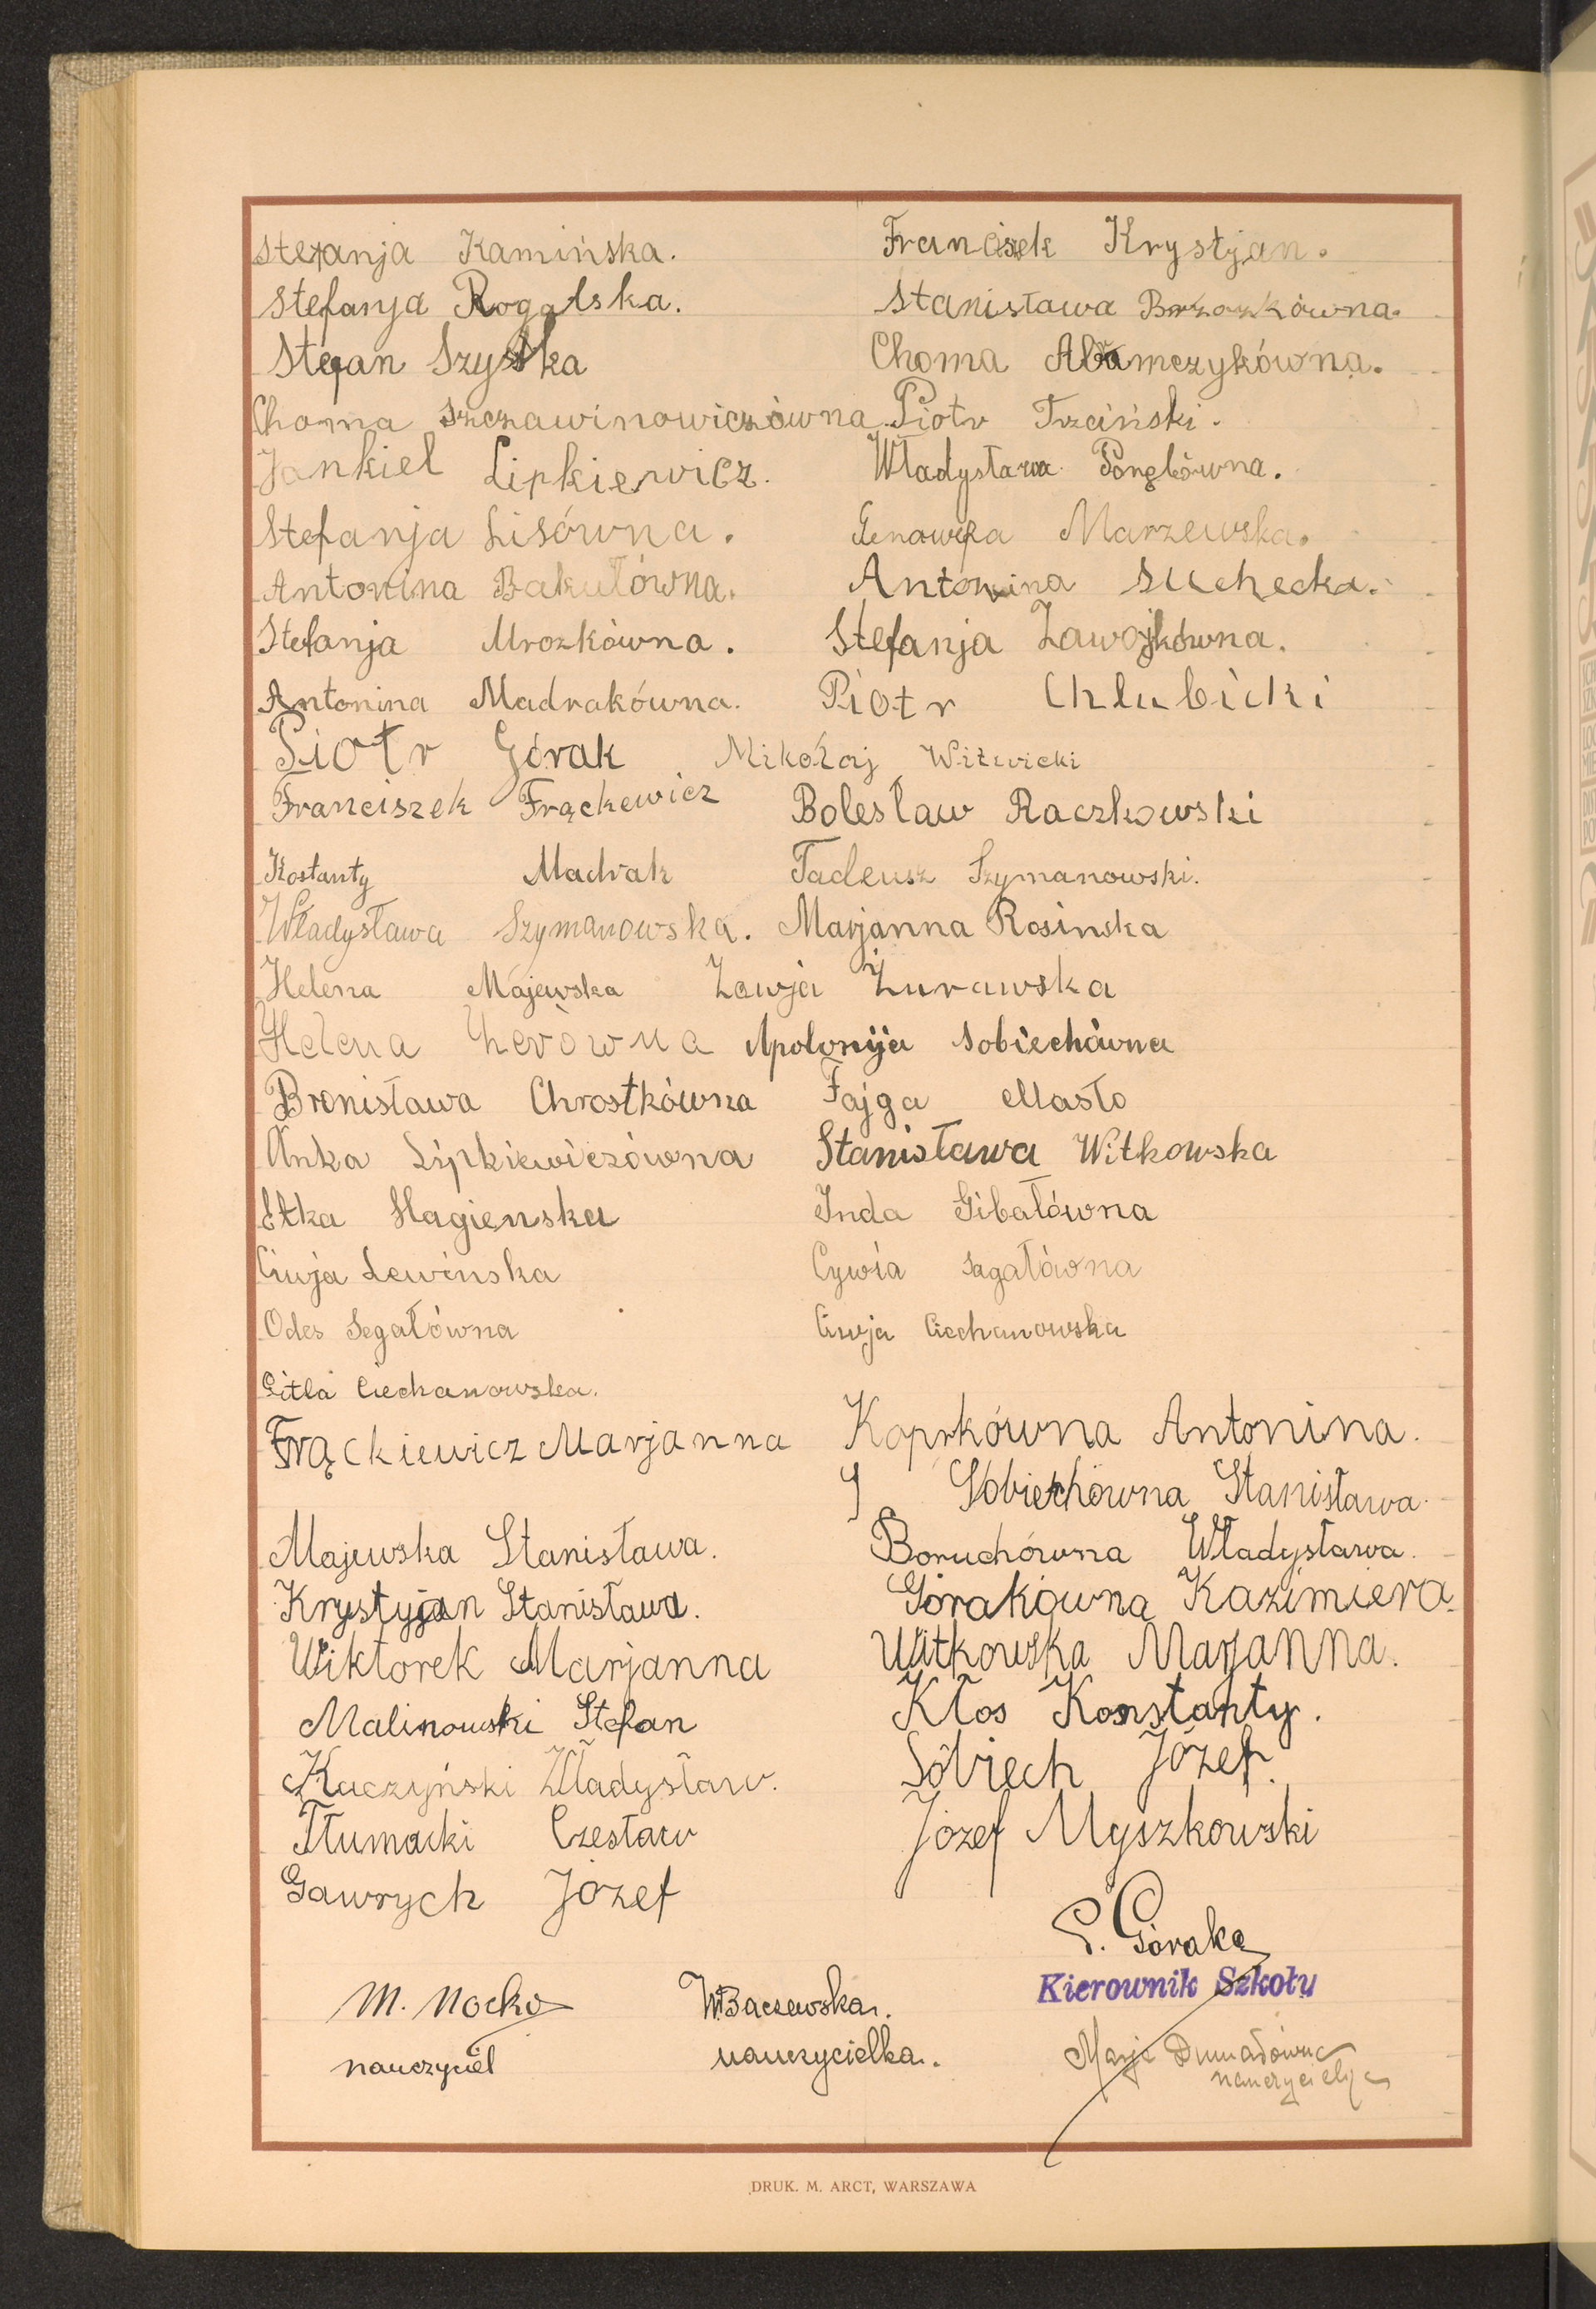 Stefanja Kamińska. Franciszek Krystjan.
Stefanja Rogalska. Stanisława Brzozkówna.
Stefan Szystka Choma Abramczykówna.
Choma Szczawinowiczówna. Piotr Trzciński.
Jankiel Lipkiewicz. Władysława Porębówna.
Stefanja Lisówna. Genowefa Marzewska.
Antonina Bakułówna. Antonina Suchecka.
Stefanja Mrozkówna. Stefanja Zawojkówna.
Antonina Madrakówna. Piotr Chlubicki
Piotr Górak Mikołaj Witwicki
Franciszek Frąckewicz Bolesław Raczkowski
Kostanty Madrak Tadeusz Szymanowski.
Władysława Szymanowska. Marjanna Rosinska
Helena Majewska Zowja Żurawska
Helena Apolonija Sobiechówna
Bronisława Chrostkówna Fajga Masło
Anka Lipkiewiczówna Stanisława Witkowska
Etka Hagienska Inda Gibałówna
Ciwja Lewinska Cywia Sagałówna
Odes Segałówna Ciwja Ciechanowska
Gitla Ciechanowska.
Frąckiewicz Marjanna Koprkówna Antonina.
Sobiechówna Stanisława.
Majewska Stanisława. Boruchówna Władysława.
Krystyjan Stanisława. Górakówna Kazimiera.
Wiktorek Marjanna Witkowska Marjanna.
Malinowski Stefan Kłos Konstanty.
Kaczyński Władysław. Sobiech Józef.
Tłumacki Czesław Józef Myszkowski
Gawrych Józef
P. Góraka
Kierownik Szkoły
M. Mocko W. Baczewska.
nauczyciel nauczycielka. Marja
DRUK. M. ARCT, WARSZAWA